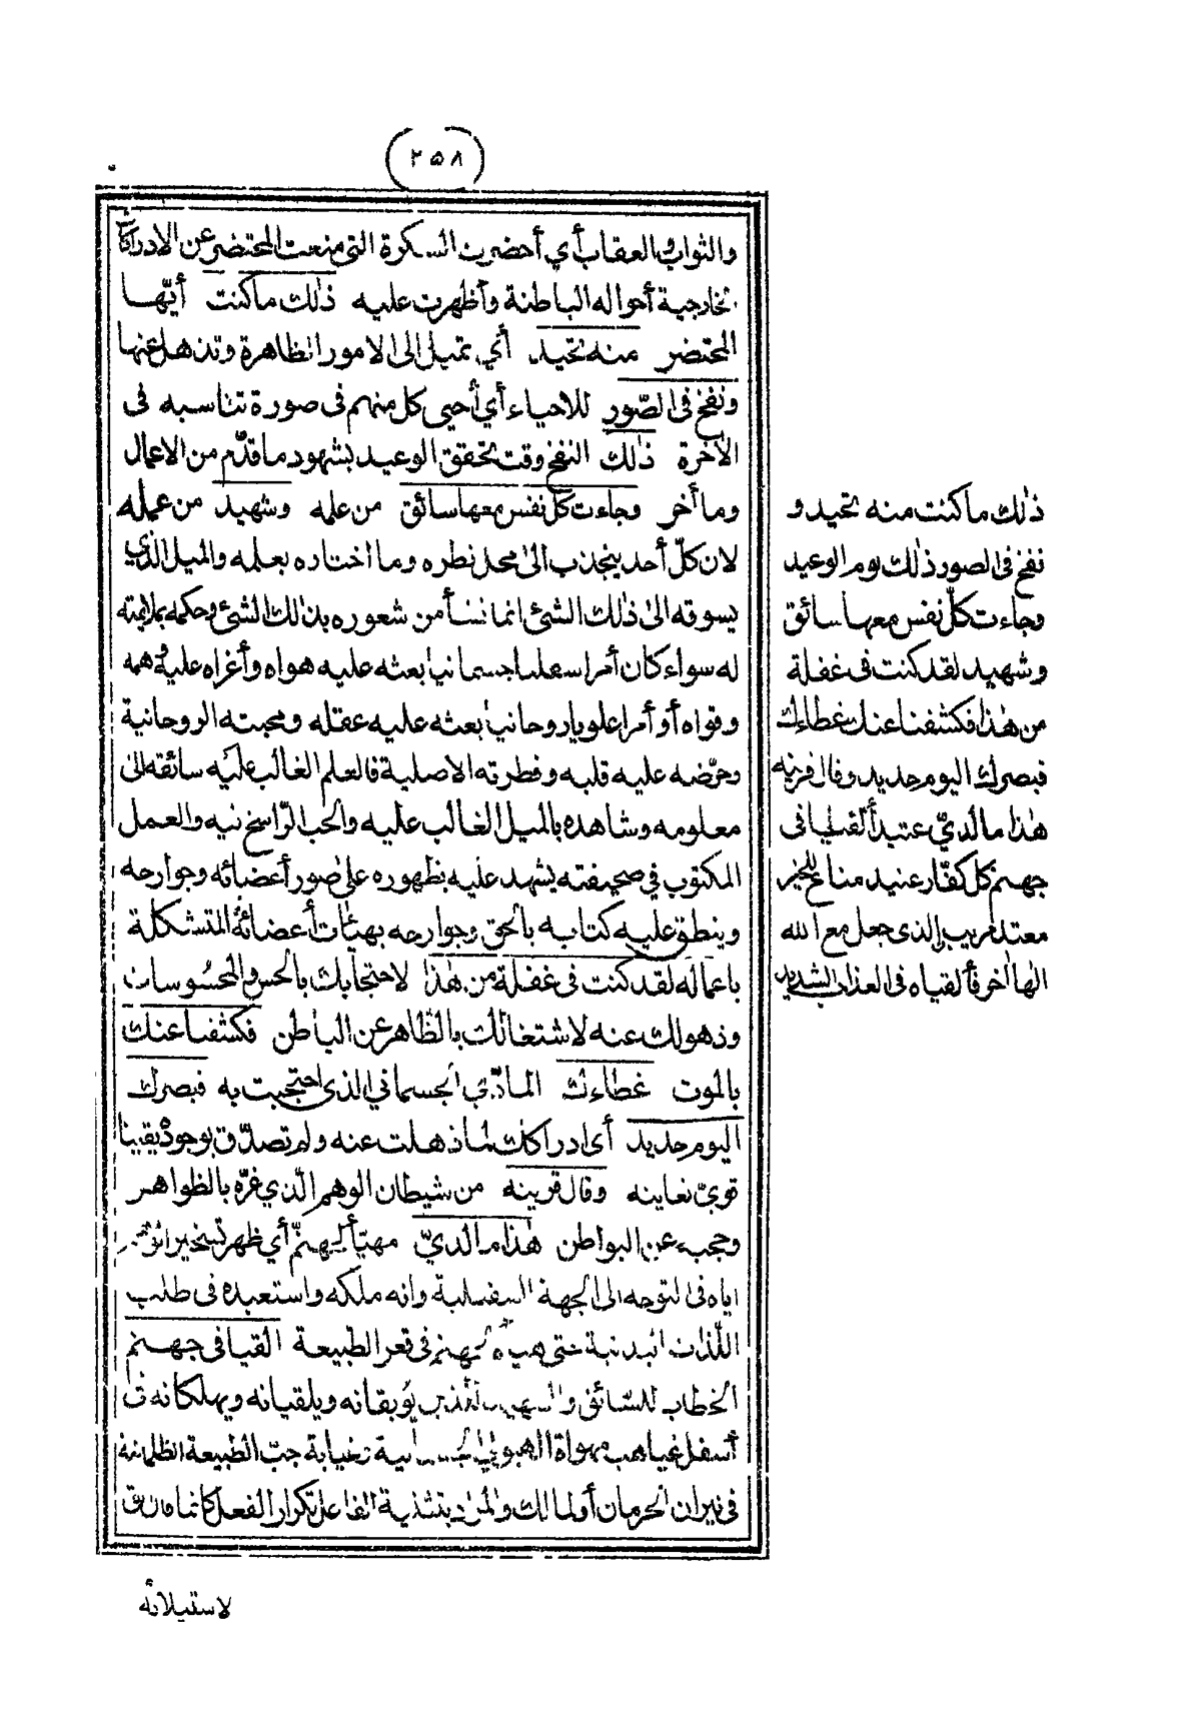 ٢٥٨
والثواب والعقاب أي أحضرت السكرة التي منعت المحتضر عن الادراكات
الخارجية أحواله الباطنة وأظهرت عليه ذلك ما كنت أيّها
المحتضر منه تحيد أي تميل الى الامور الظاهرة وتذهل عنها
ونفخ في الصّور للاحياء أي أحيى كل منهم في صورة تناسبه في
الآخرة ذلك النفخ وقت تحقق الوعيد بشهود ما قدّم من الاعمال
وما أخر وجاءت كل نفس معها سائق من علمه وشهيد من عمله
لان كلّ أحد ينجذب الى محل نظره وما اختاره بعلمه والميل الذي
يسوقه الى ذلك الشئ انما نشأ من شعوره بذلك الشئ وحكمه بملايمته
له سواء كان أمرا سفليا جسمانيا بعثه عليه هواه وأغراه عليه وهمه
وقواه أو أمرا علويا روحانيا بعثه عليه عقله ومحبته الروحانية
وحرّضه عليه قلبه وفطرته الاصلية فالعلم الغالب عليه سائقه الى
معلومه وشاهده بالميل الغالب عليه والحب الرّاسخ فيه والعمل
المكتوب في صحيفته يشهد عليه بظهوره على صور أعضائه وجوارحه
وينطق عليه كتابه بالحق وجوارحه بهيئات أعضائه المتشكلة
باعماله لقد كنت في غفلة من هذا لاحتجابك بالحس والمحسوسات
وذهولك عنه لاشتغالك بالظاهر عن الباطن فكشفنا عنك
بالموت غطاءك المادّي الجسماني الذي احتجبت به فبصرك
اليوم حديد أي ادراكك لما ذهلت عنه ولم تصدّق بوجوده يقينا
قويّ تعاينه وقال قرينه من شيطان الوهم الّذي غرّه بالظواهر
وحجبه عن البواطن هذا ما لديّ مهيّأ لجهنّم أي ظهر تسخير
اياه في التوجه الى الجهة السفلية وانه ملكه واستعبده في طلب
اللذات البدنية حتى هيأه لجهنم في قعر الطبيعة القيا في جهنم
الخطاب للسّائق والشهيد الذين يوبقانه ويلقيانه ويهلكانه في
أسفل غياهب مهواة الهيولى الجسمانية وغيابة جبّ الطبيعة الظلمانية
في نيران الحرمان أو لمالك والمراد بتثنية الفاعل تكرار الفعل كانما قال ألق
لاستيلائه
ذلك ما كنت منه تحيد و
نفخ في الصور ذلك يوم الوعيد
وجاءت كلّ نفس معها سائق
وشهيد لقد كنت في غفلة
من هذا فكشفنا عنك غطاءك
فبصرك اليوم حديد وقال قرينه
هذا ما لديّ عتيد ألقيا في
جهنم كل كفّار عنيد مناع للخير
معتد مريب الذي جعل مع الله
الها آخر فألقياه في العذاب الشديد